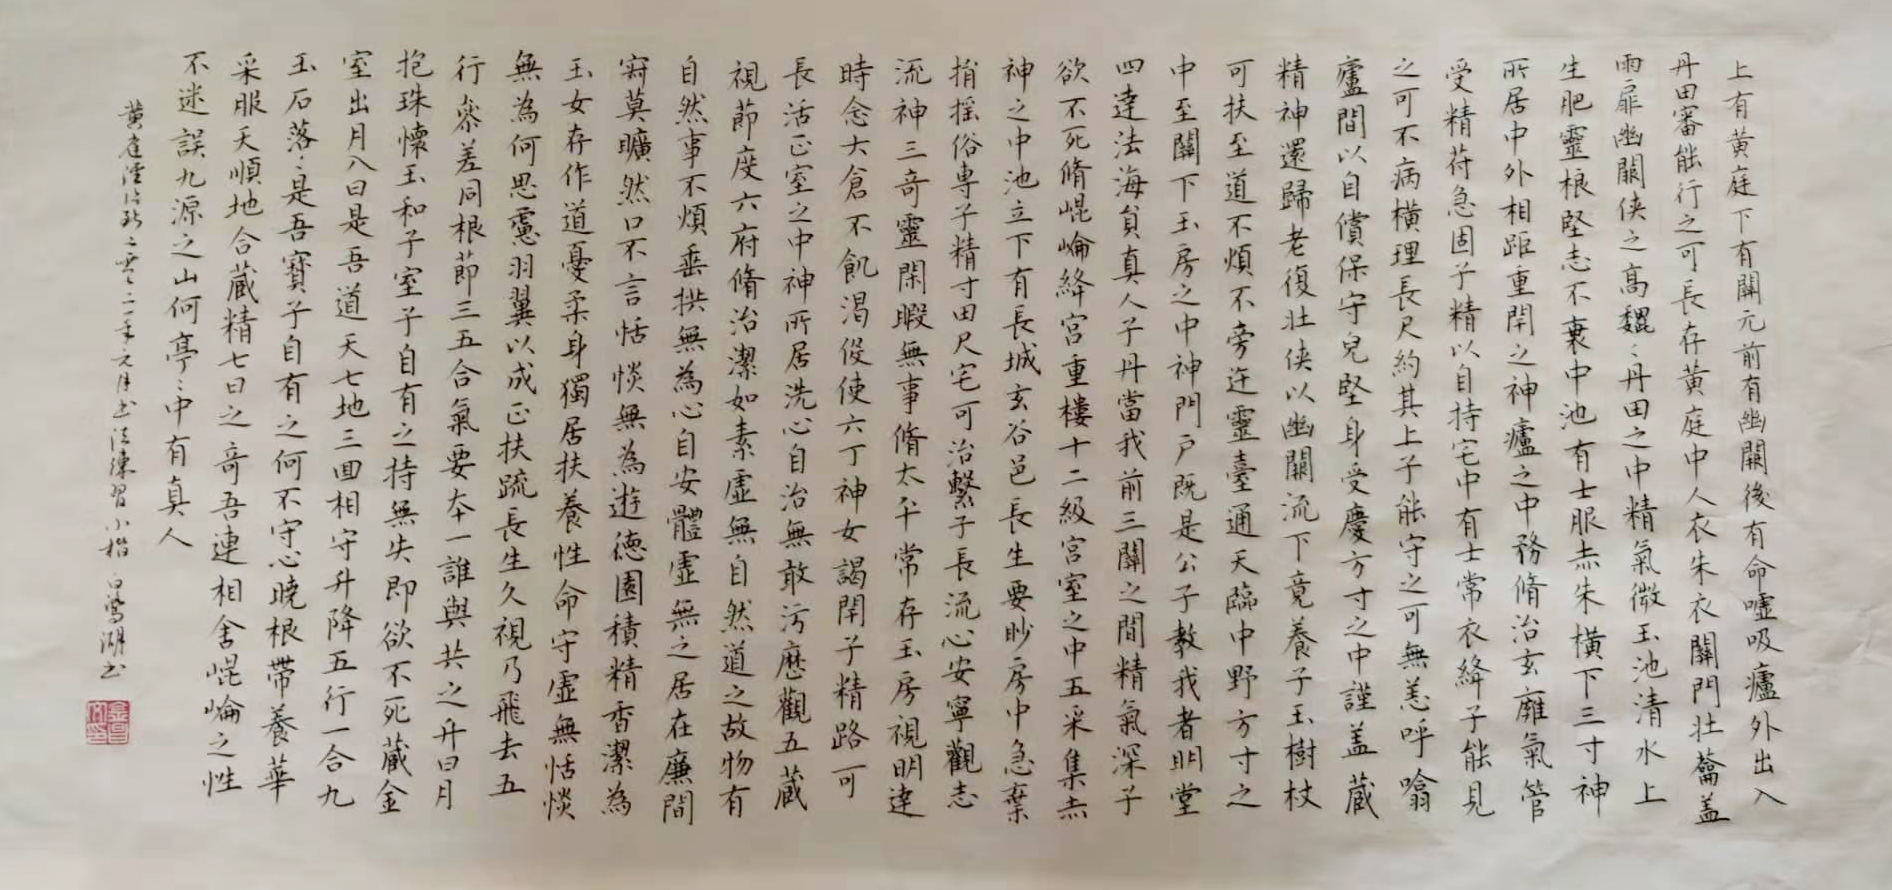 上有黄庭下有關元前有幽闕後有命嘘吸廬外出入
丹田審能行之可長存黄庭中人衣朱衣關門壮蘥盖
兩扉幽闕俠之高巍〻丹田之中精氣微玉池清水上
生肥靈根堅志不衰中池有士服赤朱横下三寸神
所居中外相距重閇之神廬之中務脩治玄㢗氣管
受精苻急固子精以自持宅中有士常衣絳子能見
之可不病横理長尺約其上子能守之可無恙呼噏
廬間以自償保守皃堅身受慶方寸之中謹盖藏
精神還歸老復壮俠以幽闕流下竟養子玉樹杖
可扶至道不煩不旁迕靈臺通天臨中野方寸之
中至關下玉房之中神門户既是公子教我者明堂
四達法海貟真人子丹當我前三關之間精氣深子
欲不死脩崐崘絳宫重樓十二級宫室之中五采集赤
神之中池立下有長城玄谷邑長生要眇房中急棄
捐揺俗専子精寸田尺宅可治繫子長流心安寧觀志
流神三竒靈閑暇無事脩太平常存玉房視明達
時念大倉不飢渴伇使六丁神女謁閇子精路可
長活正室之中神所居洗心自治無敢污歷觀五藏
視節度六府脩治潔如素虚無自然道之故物有
自然事不煩垂拱無為心自安體虚無之居在廉間
寂莫曠然口不言恬惔無為遊德園積精香潔為
玉女存作道憂柔身獨居扶養性命守虚無恬惔
無為何思慮羽翼以成正扶疏長生久視乃飛去五
行叅差同根莭三五合氣要夲一誰與共之升日月
抱珠懐玉和子室子自有之持無失即欲不死藏金
室出月入日是吾道天七地三回相守升降五行一合九
玉石落〻是吾寳子自有之何不守心暁根帶養華
采服天順地合藏精七日之竒吾連相舍崐崘之性
不迷誤九源之山何亭〻中有真人